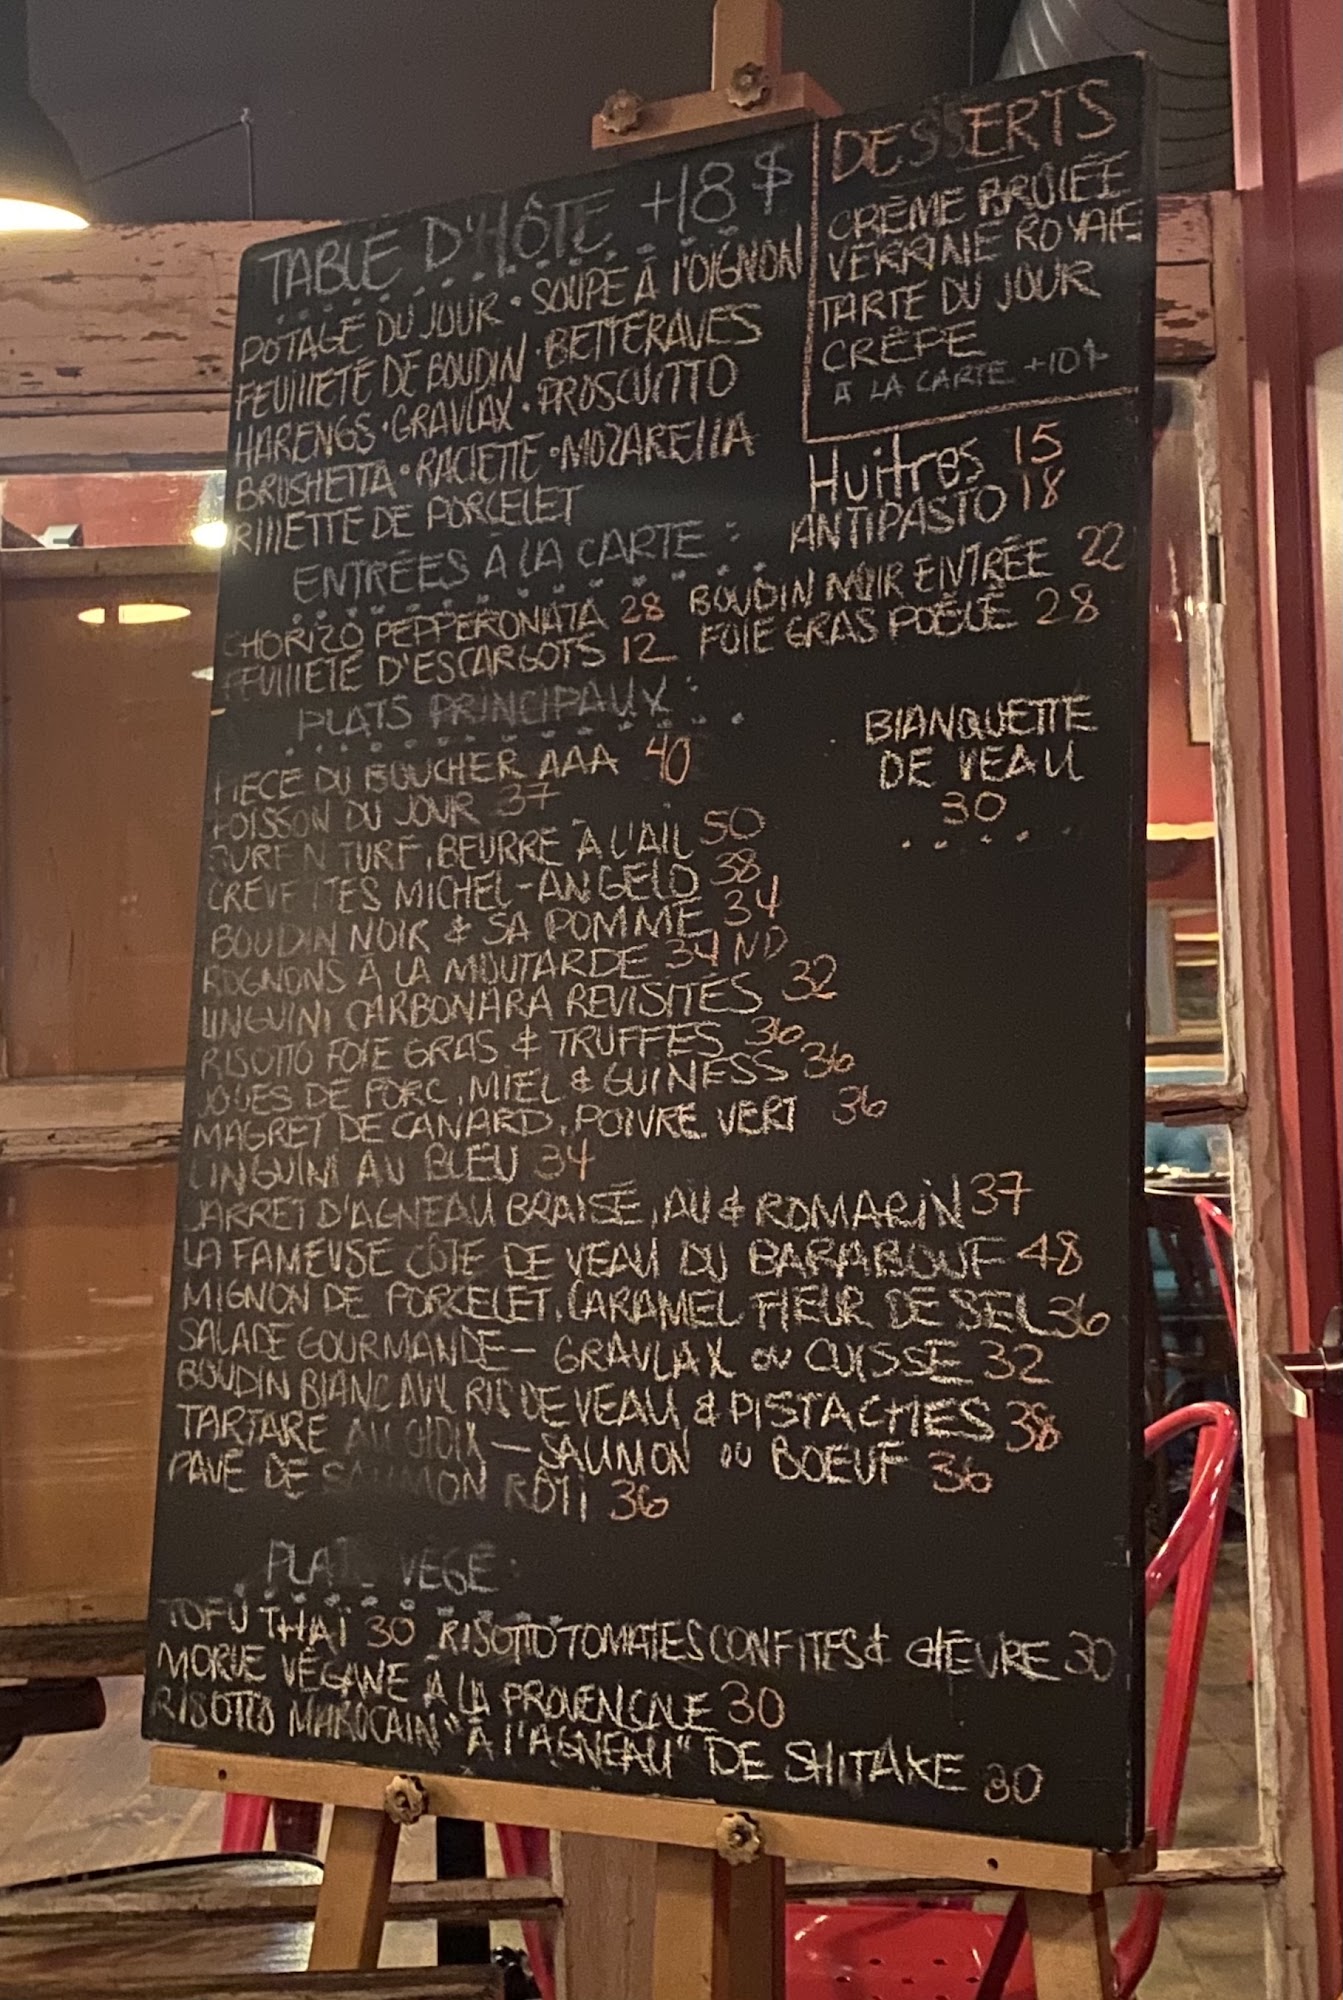 TABLE D'HÔTE +18$
POTAGE DU JOUR • SOUPE À l'OIGNON
FEUIllETÉ DE BOUDIN • BETTERAVES
HARENGS • GRAVLAX • PROSCUITTO
BRUSHETTA • RAClETTE • MOZAREllA
RIllETTE DE PORCELET
DESSERTS
CRÈME BRÛlÉE
VERRINE ROYAlE
TARTE DU JOUR
CRÊPE
À LA CARTE +10$
Huîtres 15
ANTIPASTO 18
ENTRÉES À LA CARTE :
CHORIZO PEPPERONATA 28
FEUIllETÉ D'ESCARGOTS 12
BOUDIN NOIR ENTRÉE 22
FOIE GRAS POÊLÉ 28
PLATS PRINCIPAUX :
PIÈCE DU BOUCHER AAA 40
POISSON DU JOUR 37
SURF N TURF, BEURRE À L'AIL 50
CREVETTES MICHEL-ANGELO 38
BOUDIN NOIR & SA POMME 34
ROGNONS À LA MOUTARDE 34 ND
LINGUINI CARBONARA REVISITÉS 32
RISOTTO FOIE GRAS & TRUFFES 36
JOUES DE PORC, MIEL & GUINESS 36
MAGRET DE CANARD, POIVRE VERT 36
LINGUINI AU BLEU 34
JARRET D'AGNEAU BRAISÉ, AIL & ROMARIN 37
LA FAMEUSE CÔTE DE VEAU DU BARABOUF 48
MIGNON DE PORCELET, CARAMEL FlEUR DE SEL 36
SALADE GOURMANDE – GRAVLAX OU CUISSE 32
BOUDIN BlANC AUX RIS DE VEAU & PISTACHES 38
TARTARE AU CHOIX – SAUMON OU BOEUF 36
PAVÉ DE SAUMON RÔTI 36
BlANQUETTE
DE VEAU
30
PLATS VÉGÉ :
TOFU THAÏ 30 RISOTTO TOMATES CONFITES & CHÈVRE 30
MORUE VÉGANE À LA PROVENÇALE 30
RISOTTO MAROCAIN "À l'AGNEAU" DE SHITAKE 30